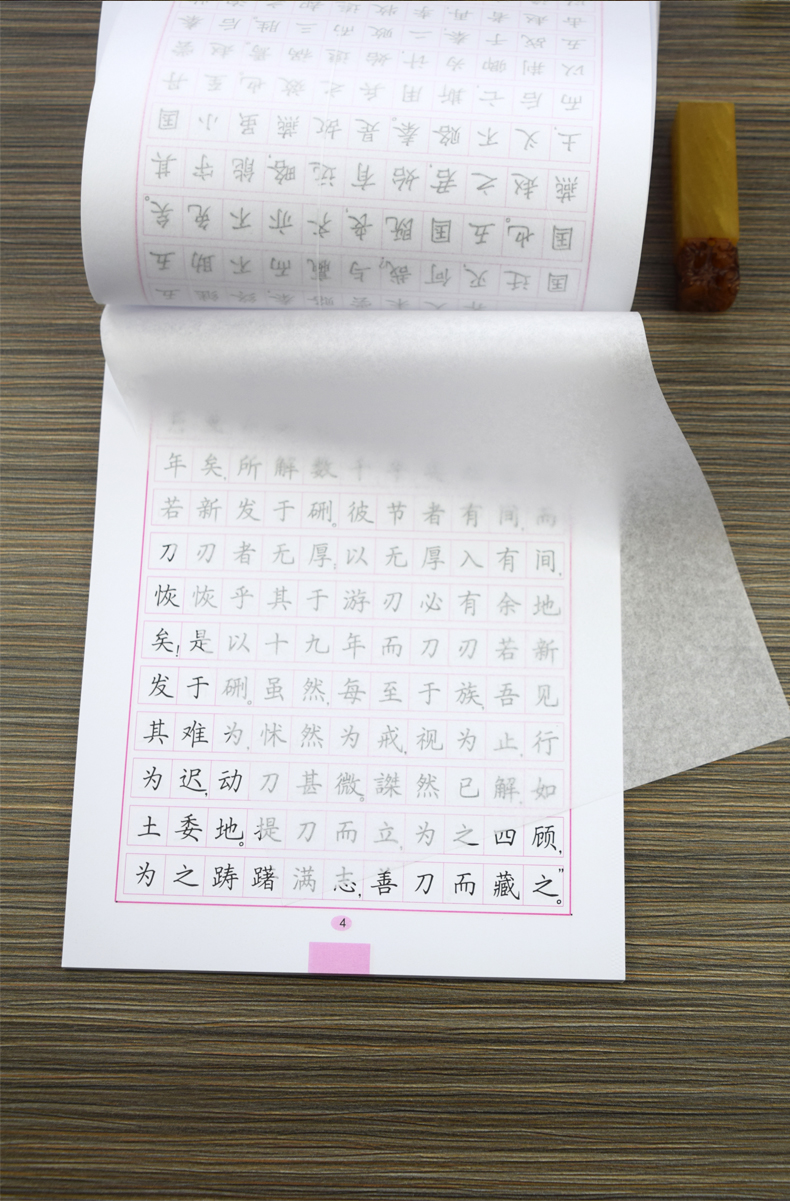 国迁灭,何哉?与嬴而不助五
国也。五国既丧,齐亦不免矣。
燕赵之君,始有远略,能守其
土,义不赂秦。是故燕虽小国
而后亡,斯用兵之效也。至丹
以荆卿为计,始速祸焉。赵尝
五战于秦,二败而三胜。后秦
年矣,所解数千牛
若新发于硎。彼节者有间,而
刀刃者无厚;以无厚入有间,
恢恢乎其于游刃必有余地
矣!是以十九年而刀刃若新
发于硎。虽然,每至于族,吾见
其难为,怵然为戒,视为止,行
为迟,动刀甚微。謋然已解,如
土委地。提刀而立,为之四顾,
为之踌躇满志,善刀而藏之。”
4